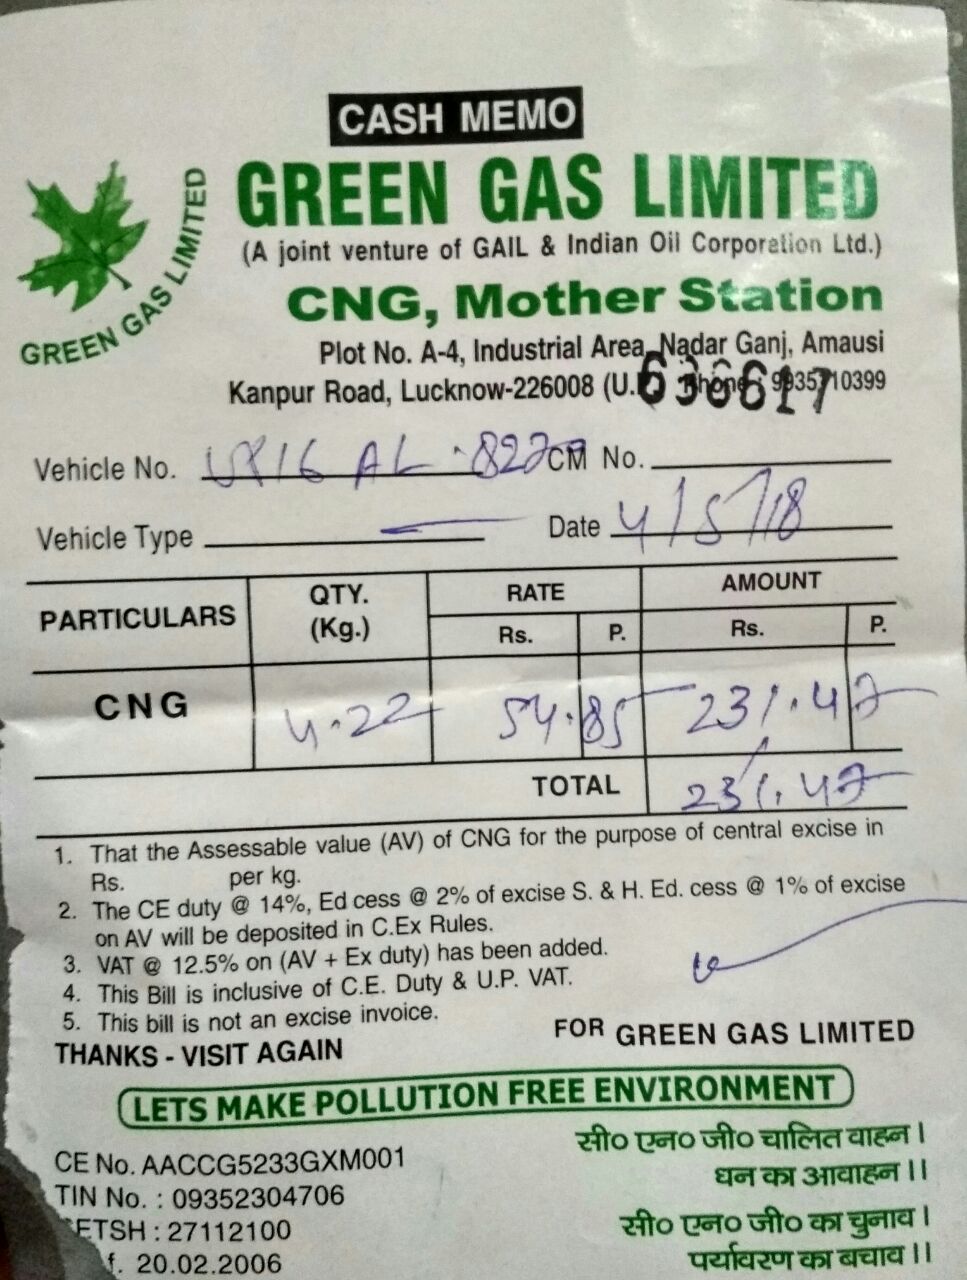 CASH MEMO
GREEN GAS LIMITED
GREEN GAS LIMITED
(A joint venture of GAIL & Indian Oil Corporation Ltd.)
CNG, Mother Station
Plot No. A-4, Industrial Area, Nadar Ganj, Amausi
Kanpur Road, Lucknow-226008 (U.P.) Phone : 9935710399
636617
Vehicle No. UP16 AL CM No.
Vehicle Type — Date 4/5/18
PARTICULARS QTY. (Kg.) RATE AMOUNT
Rs. P. Rs. P.
CNG 4.22 54.85 231.47
TOTAL 231.47
1. That the Assessable value (AV) of CNG for the purpose of central excise in
Rs. per kg.
2. The CE duty @ 14%, Ed cess @ 2% of excise S. & H. Ed. cess @ 1% of excise
on AV will be deposited in C.Ex Rules.
3. VAT @ 12.5% on (AV + Ex duty) has been added.
4. This Bill is inclusive of C.E. Duty & U.P. VAT.
5. This bill is not an excise invoice.
THANKS - VISIT AGAIN
FOR GREEN GAS LIMITED
LETS MAKE POLLUTION FREE ENVIRONMENT
CE No. AACCG5233GXM001
TIN No. : 09352304706
ETSH : 27112100
f. 20.02.2006
सी० एन० जी० चालित वाहन ।
धन का आवाहन ।।
सी० एन० जी० का चुनाव ।
पर्यावरण का बचाव ।।